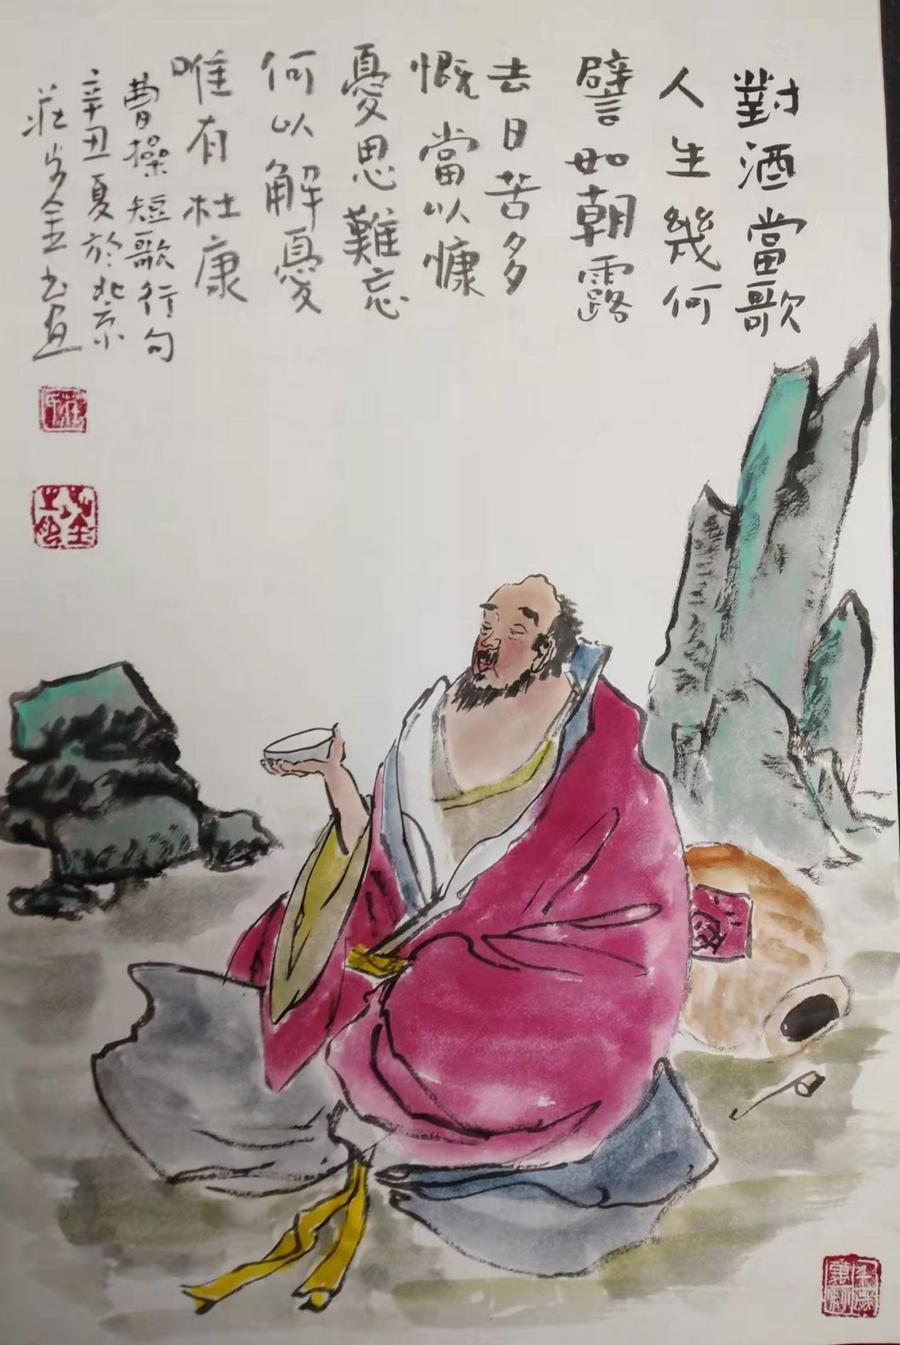 對酒當歌
人生幾何
譬如朝露
去日苦多
慨當以慷
憂思難忘
何以解憂
唯有杜康
曹操短歌行句
辛丑夏於北京
莊步金书画
酒